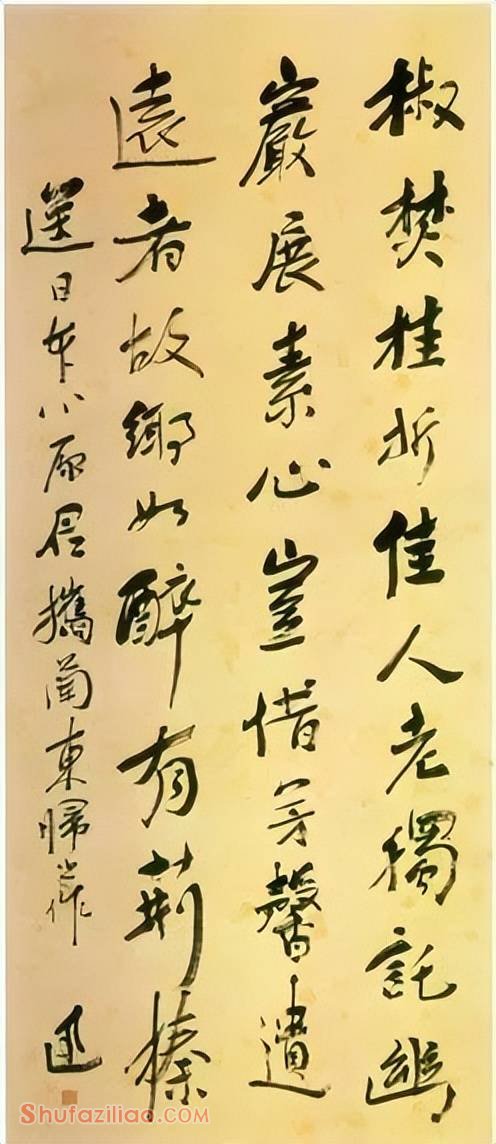 椒焚桂折佳人老獨託幽
巖展素心豈惜芳馨遺
遠者故鄉如醉有荊榛
送日本小原君攜蘭東歸作 迅
Shufaziliao.COM